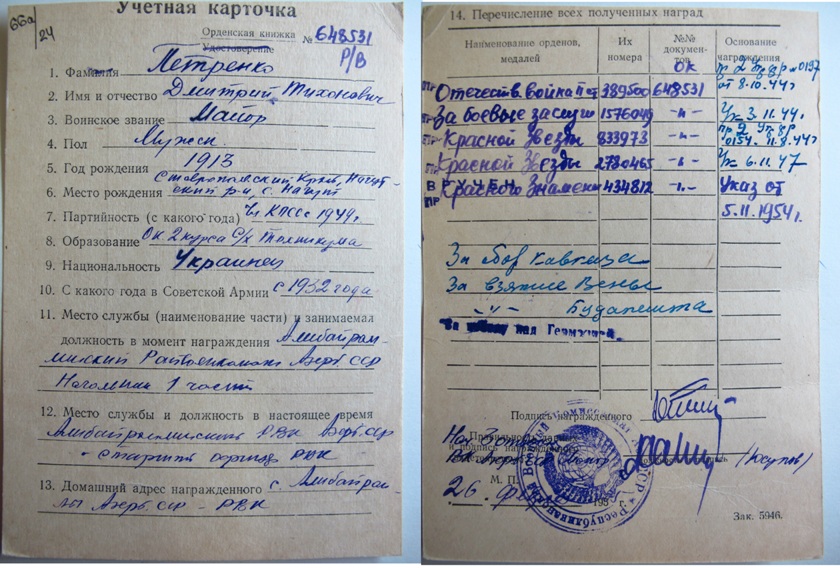 66а/24
Учетная карточка
Орденская книжка № 648531
Удостоверение Р/В
1. Фамилия Петренко
2. Имя и отчество Дмитрий Тихонович
3. Воинское звание Майор
4. Пол Мужск.
5. Год рождения 1913
Ставропольский Край,
6. Место рождения р-н, с.
7. Партийность (с какого года) Чл КПСС с 1949г.
8. Образование Ок. 2 курса С/х Техникума
9. Национальность Украинец
10. С какого года в Советской Армии с 1932 года
11. Место службы (наименование части) и занимаемая
должность в момент награждения Алибайрам-
линский Райвоенкомат Азерб. ССР
1 части
12. Место службы и должность в настоящее время
Алибайрамлинский РВК Азерб. ССР
РВК
13. Домашний адрес награжденного с. Алибайрам-
лы Азерб. ССР - РВК
14. Перечисление всех полученных наград
Наименование орденов, медалей
Их номера
№№ докумен-тов
Основание награждения
ОК
от 8.10.44г
Отечеств. войны II ст 389500 648531
За боевые заслуги 1576049 -"- Ук 3.11.44г.
Красной Звезды 833973 -"- 0154 11.8.44г
Красной Звезды 2730465 -"- Ук 6.11.47
Красного Знамени 434812 -"- Указ от
5.11.1954г.
За обор Кавказа
За взятие Вены
-"- Будапешта
над Германией.
Подпись награжденного
М. П.
26.
198
(Юсупов)
Зак. 5946.